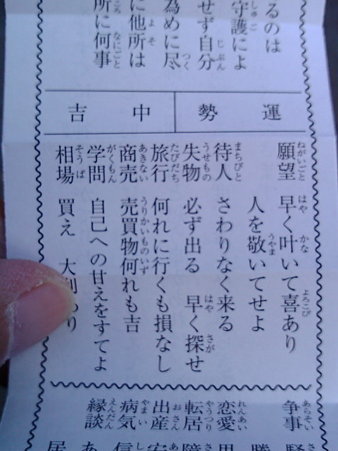 るのは
守護によ
せず自分
為めに尽
に他所は
所に何事
運勢 中吉
願望 早く叶いて喜あり
人を敬いてせよ
待人 さわりなく来る
失物 必ず出る 早く探せ
旅行 何れに行くも損なし
商売 売買物何れも吉
学問 自己への甘えをすてよ
相場 買え 大利あり
争事
勝
恋愛
転居
出産 安
病気 信
縁談 あ